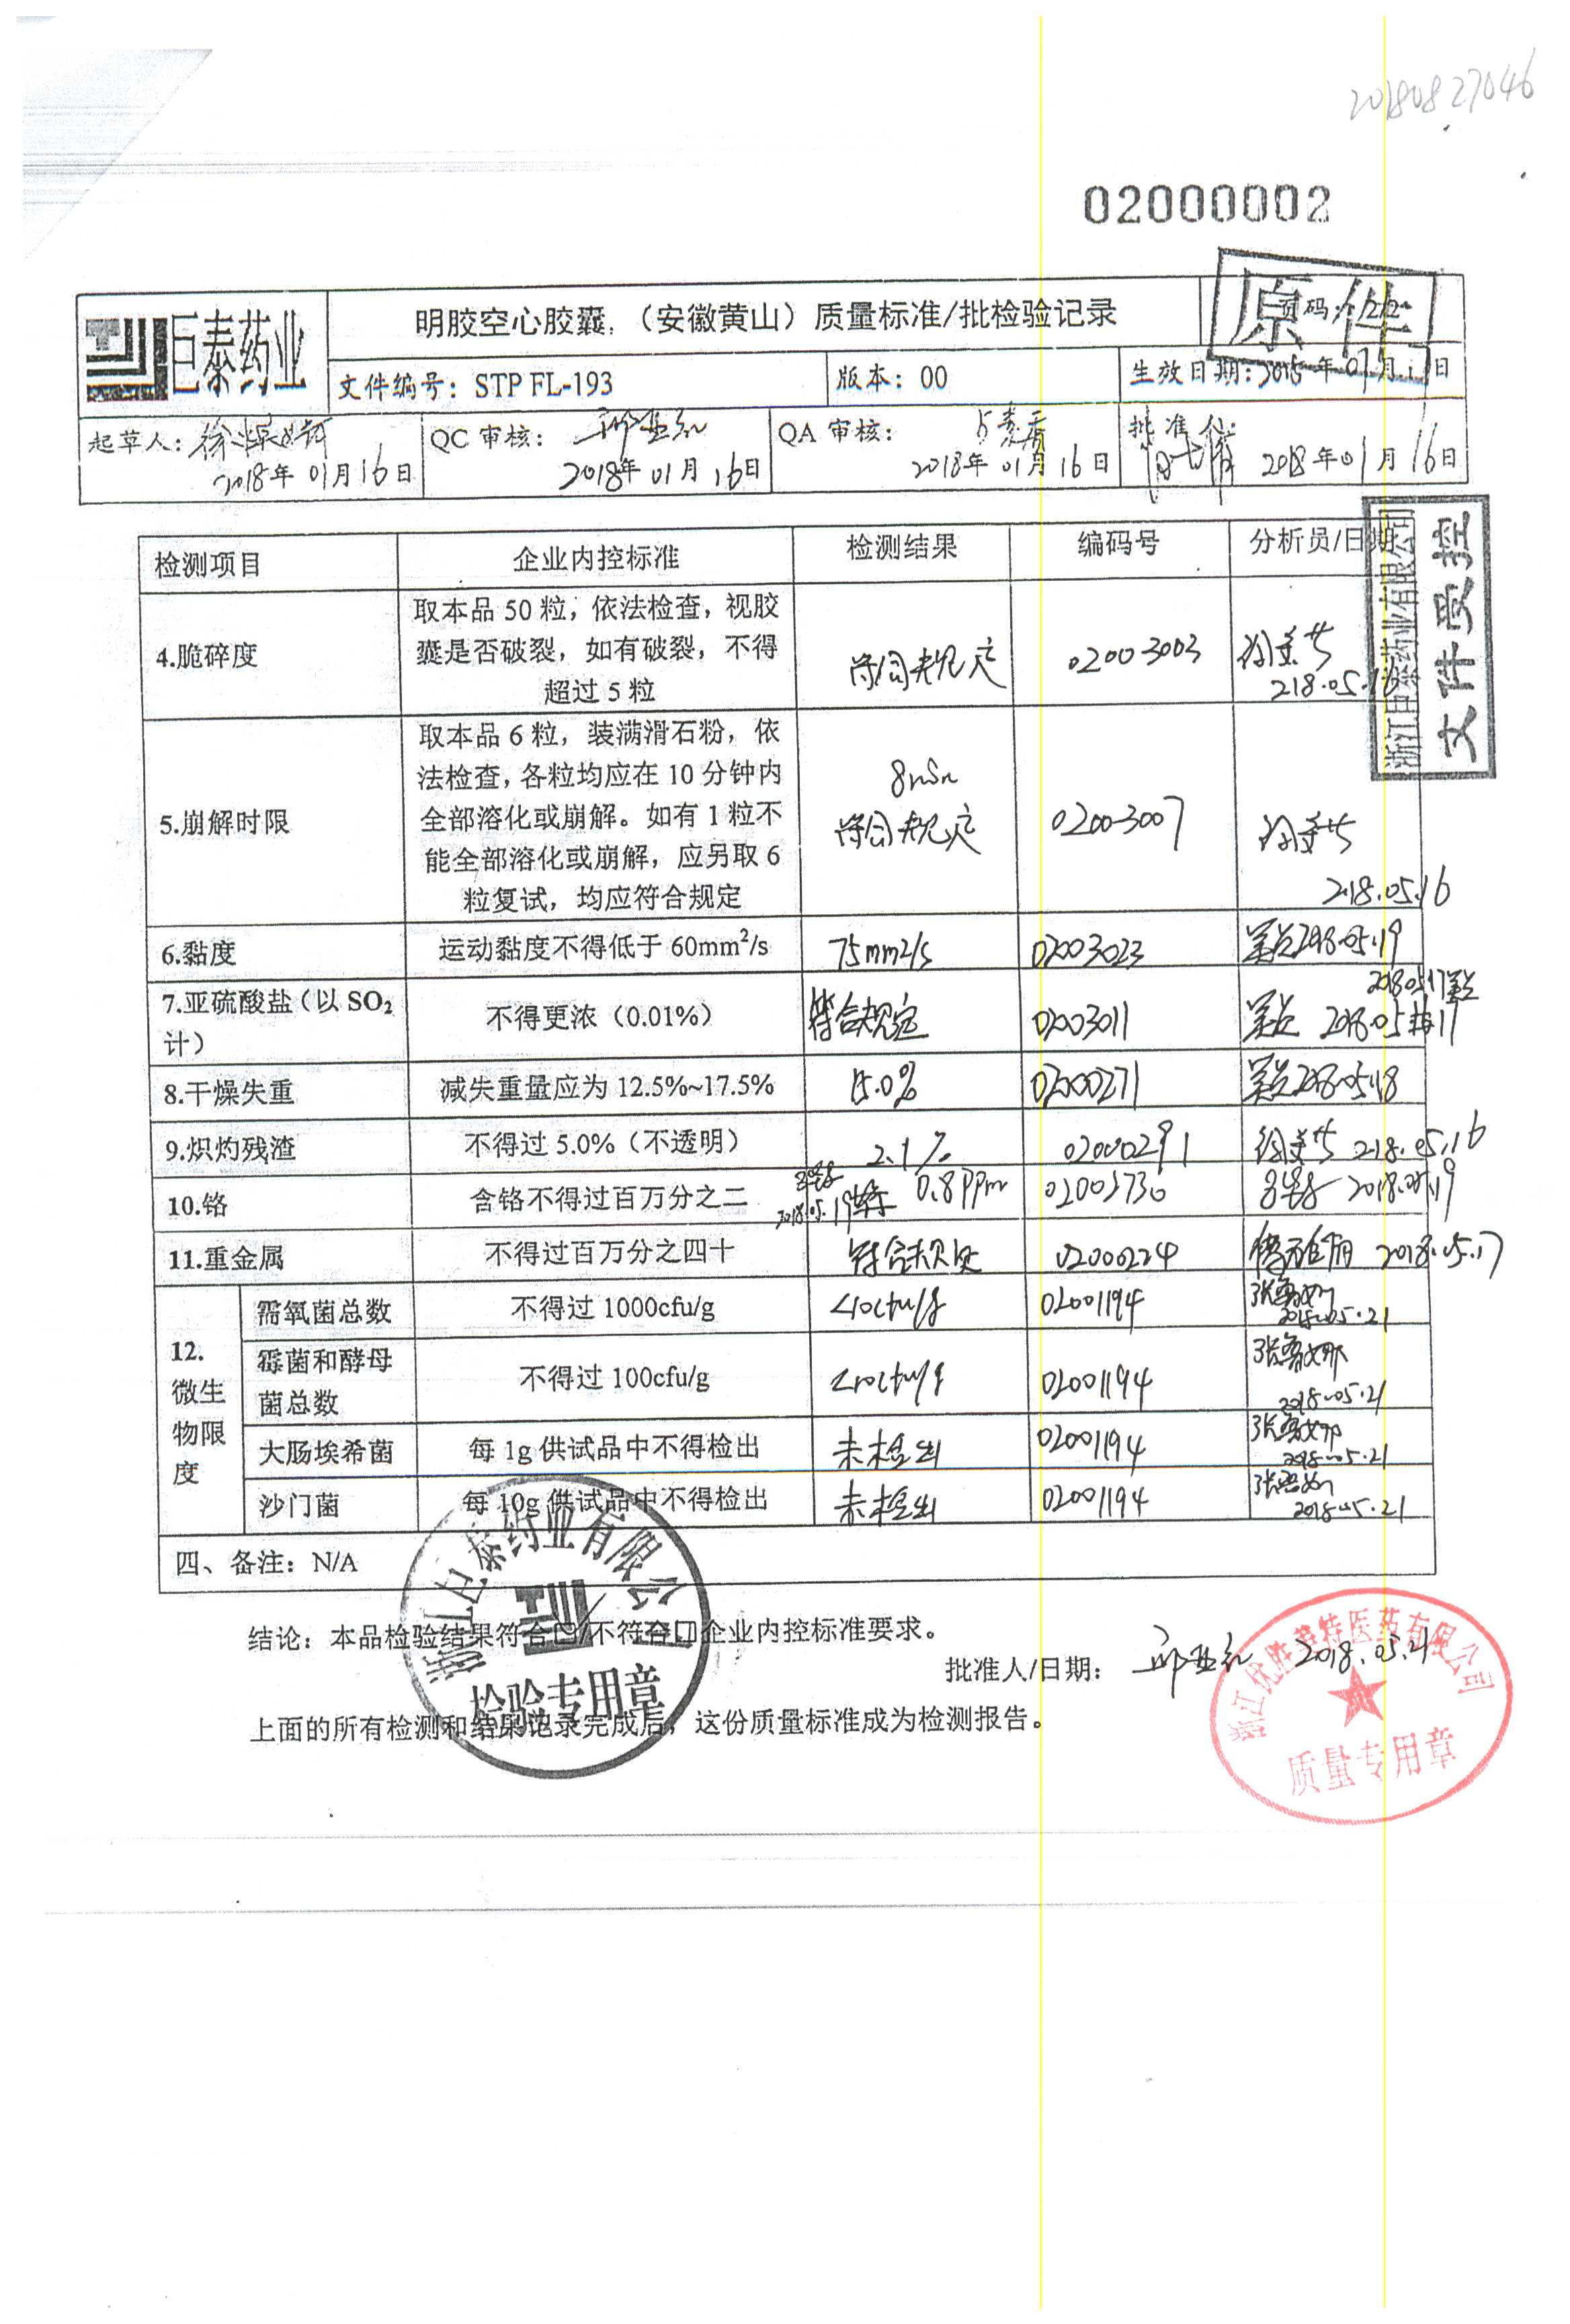 20180827046
02000002
巨泰药业
明胶空心胶囊,（安徽黄山）质量标准/批检验记录
页码：2/2
原件
文件编号：STP FL-193
版本：00
生效日期：年01月日
起草人：
2018年01月16日
QC 审核：
2018年01月16日
QA 审核：
2018年01月16日
批准人：
2018年01月16日
浙江巨泰药业有限公司
文件受控
检测项目
企业内控标准
检测结果
编码号
分析员/日期
4.脆碎度
取本品 50 粒，依法检查，视胶
囊是否破裂，如有破裂，不得
超过 5 粒
符合规定
02003003
218.05.16
5.崩解时限
取本品 6 粒，装满滑石粉，依
法检查，各粒均应在 10 分钟内
全部溶化或崩解。如有 1 粒不
能全部溶化或崩解，应另取 6
粒复试，均应符合规定
8min
符合规定
02003007
218.05.16
6.黏度
运动黏度不得低于 60mm²/s
75mm2/s
02003023
2018.05.19
7.亚硫酸盐（以 SO₂
计）
不得更浓（0.01%）
符合规定
02003011
2018.05.17
2018.05 17
8.干燥失重
减失重量应为 12.5%~17.5%
15.0%
02000271
2018.05.18
9.炽灼残渣
不得过 5.0%（不透明）
2.1%
02000291
218.05.16
10.铬
含铬不得过百万分之二
2018.05.19
0.8ppm
02003730
2018.05.19
11.重金属
不得过百万分之四十
符合规定
02000224
2018.05.17
12.
微生
物限
度
需氧菌总数
不得过 1000cfu/g
<10cfu/g
02001194
2018.05.21
霉菌和酵母
菌总数
不得过 100cfu/g
<10cfu/g
02001194
2018.05.21
大肠埃希菌
每 1g 供试品中不得检出
未检出
02001194
2018.05.21
沙门菌
每 10g 供试品中不得检出
未检出
02001194
2018.05.21
四、备注：N/A
结论：本品检验结果符合☑/不符合口企业内控标准要求。
批准人/日期：
2018.05.21
上面的所有检测和结果记录完成后，这份质量标准成为检测报告。
浙江巨泰药业有限公司
检验专用章
浙江优胜美特医药有限公司
质量专用章